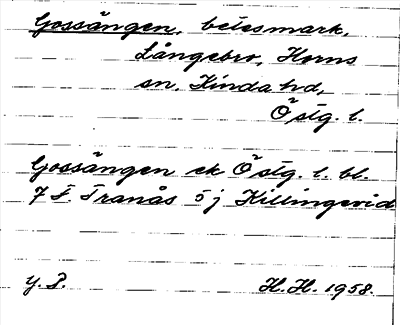 Gossängen, betesmark,
Långebro, Horns
sn, Kinda hd,
Östg. l.
Gossängen ek Östg. l. bl.
7 F. Tranås 5 j Killingevid
Y. P.
H. H. 1958.